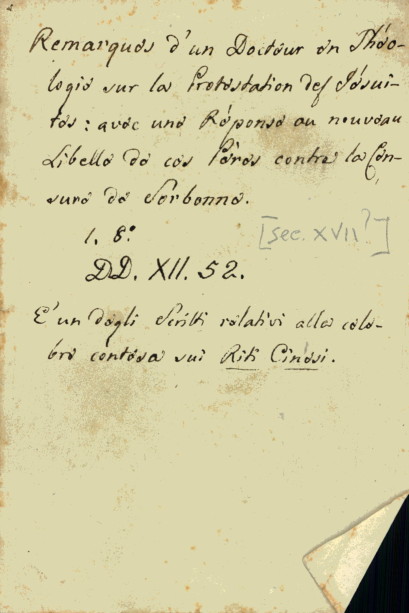 Remarques d'un Docteur en Théo-
logie sur la Protestation des Jésui-
tes: avec une Réponse au nouveau
Libelle de ces Péres contre la Cen-
sure de Sorbonne.
1. 8.°
[sec. XVII?]
DD. XII. 52.
E' un degli Scritti relativi alla cele-
bre contesa sui Riti Cinesi.